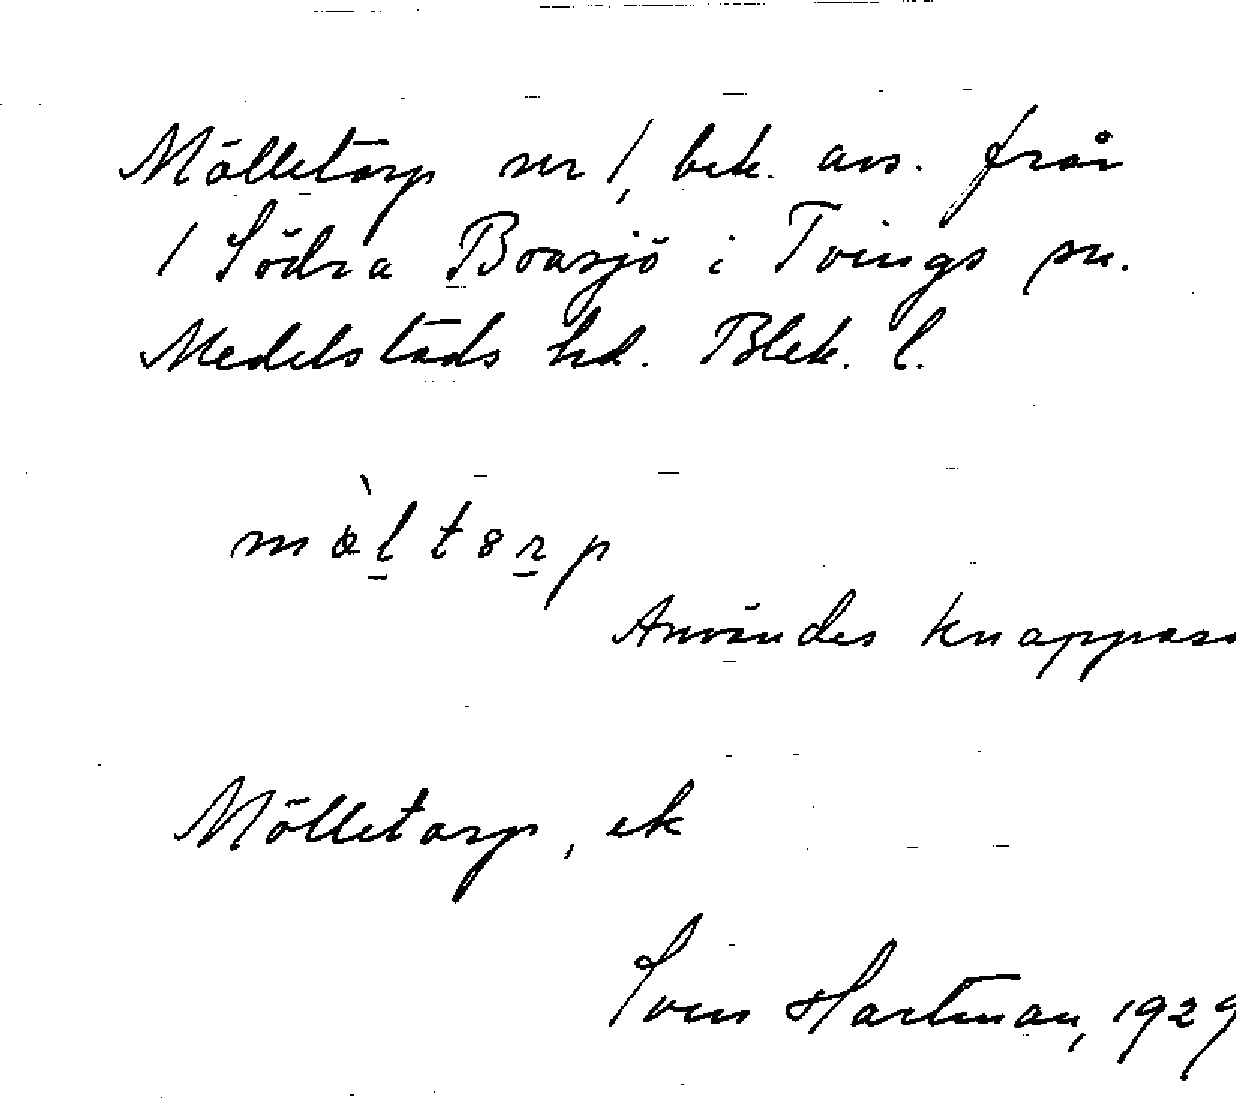 Mölletorp nr 1, bek. avs. från
1 Södra Boasjö i Tvings sn.
Medelstads hd. Blek. l.
Användes knappast
Mölletorp, ek
Sven Hartman, 1929